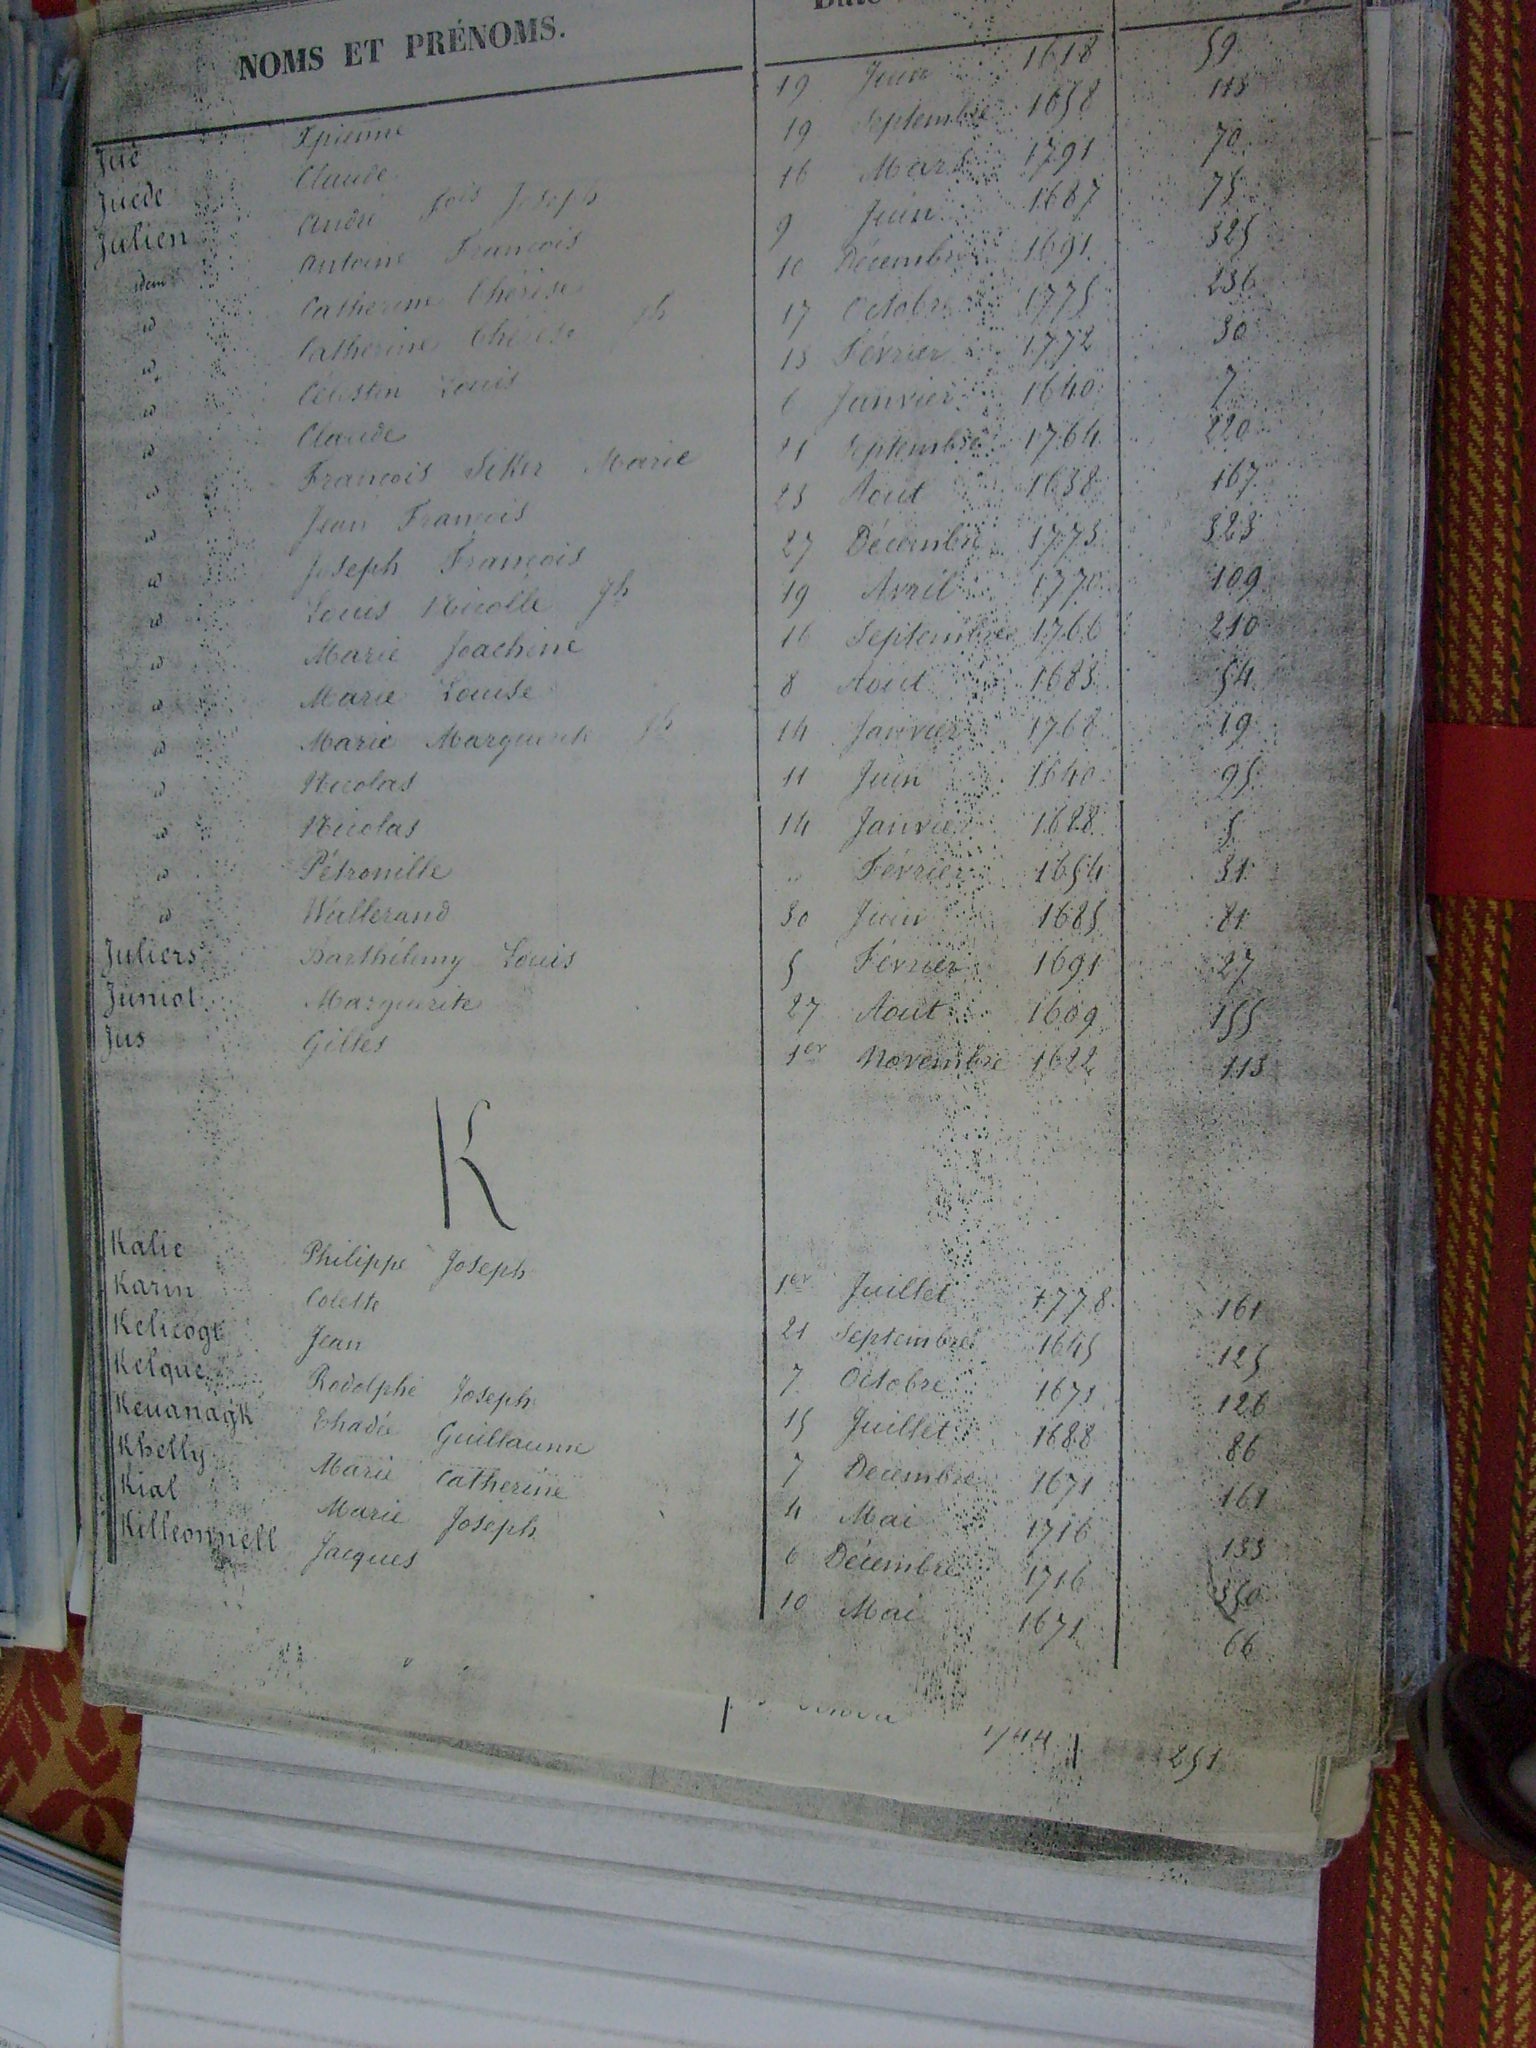 NOMS ET PRÉNOMS.
Jué 19 Juin 1618 59
Juède Claude 19 Septembre 1658 113
Julien André fois Joseph 16 Mars 1791 70
idem Antoine François 9 Juin 1687 75
id Catherine Thérèse 10 Décembre 1691 325
id Catherine Thérèse Jh 17 Octobre 1775 236
id Célestin Louis 13 Février 1772 30
id Claude 6 Janvier 1640 7
id François Siker Marie 21 Septembre 1764 220
id Jean François 23 Aout 1638 167
id Joseph François 27 Décembre 1773 323
id Louis Nicolle Jh 19 Avril 1770 109
id Marie Joachine 16 Septembre 1766 210
id Marie Louise 8 Aout 1683 54
id Marie Marguerite Jh 14 Janvier 1768 19
id Nicolas 11 Juin 1640 95
id Nicolas 14 Janvier 1628 5
id Pétronille " Février 1654 31
id Wallerand 30 Juin 1685 81
Juliers Barthélemy Louis 5 Février 1691 27
Juniot Marguerite 27 Aout 1609 155
Jus Gilles 1er Novembre 1622 113
K
Kalie Philippe Joseph 1er Juillet 1778 161
Karin Colette 21 Septembre 1645 125
Kelicogt Jean 7 Octobre 1671 126
Kelque Rodolphe Joseph 15 Juillet 1688 86
Kevanagk Thadée Guillaume 7 Décembre 1671 161
Khelly Marie Catherine 4 Mai 1716 133
Kial Marie Joseph 6 Décembre 1716 350
Killeonnell Jacques 10 Mai 1671 66
1744 251